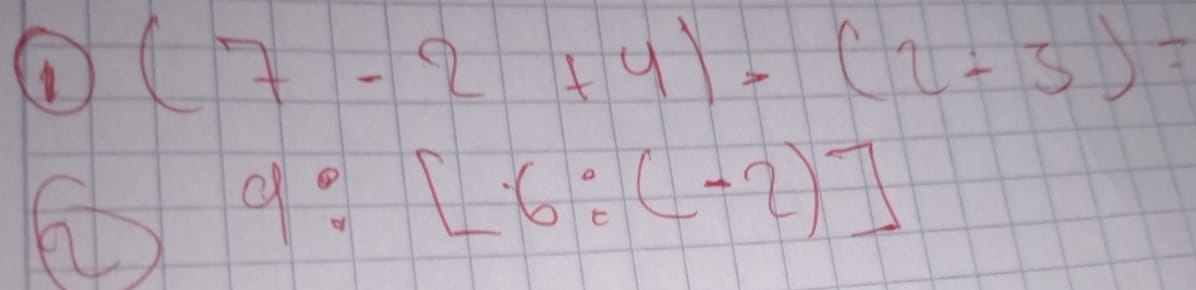 ① (7 - 2 + 4) - (2 - 5) =
② 9 : [-6 : (-2)]